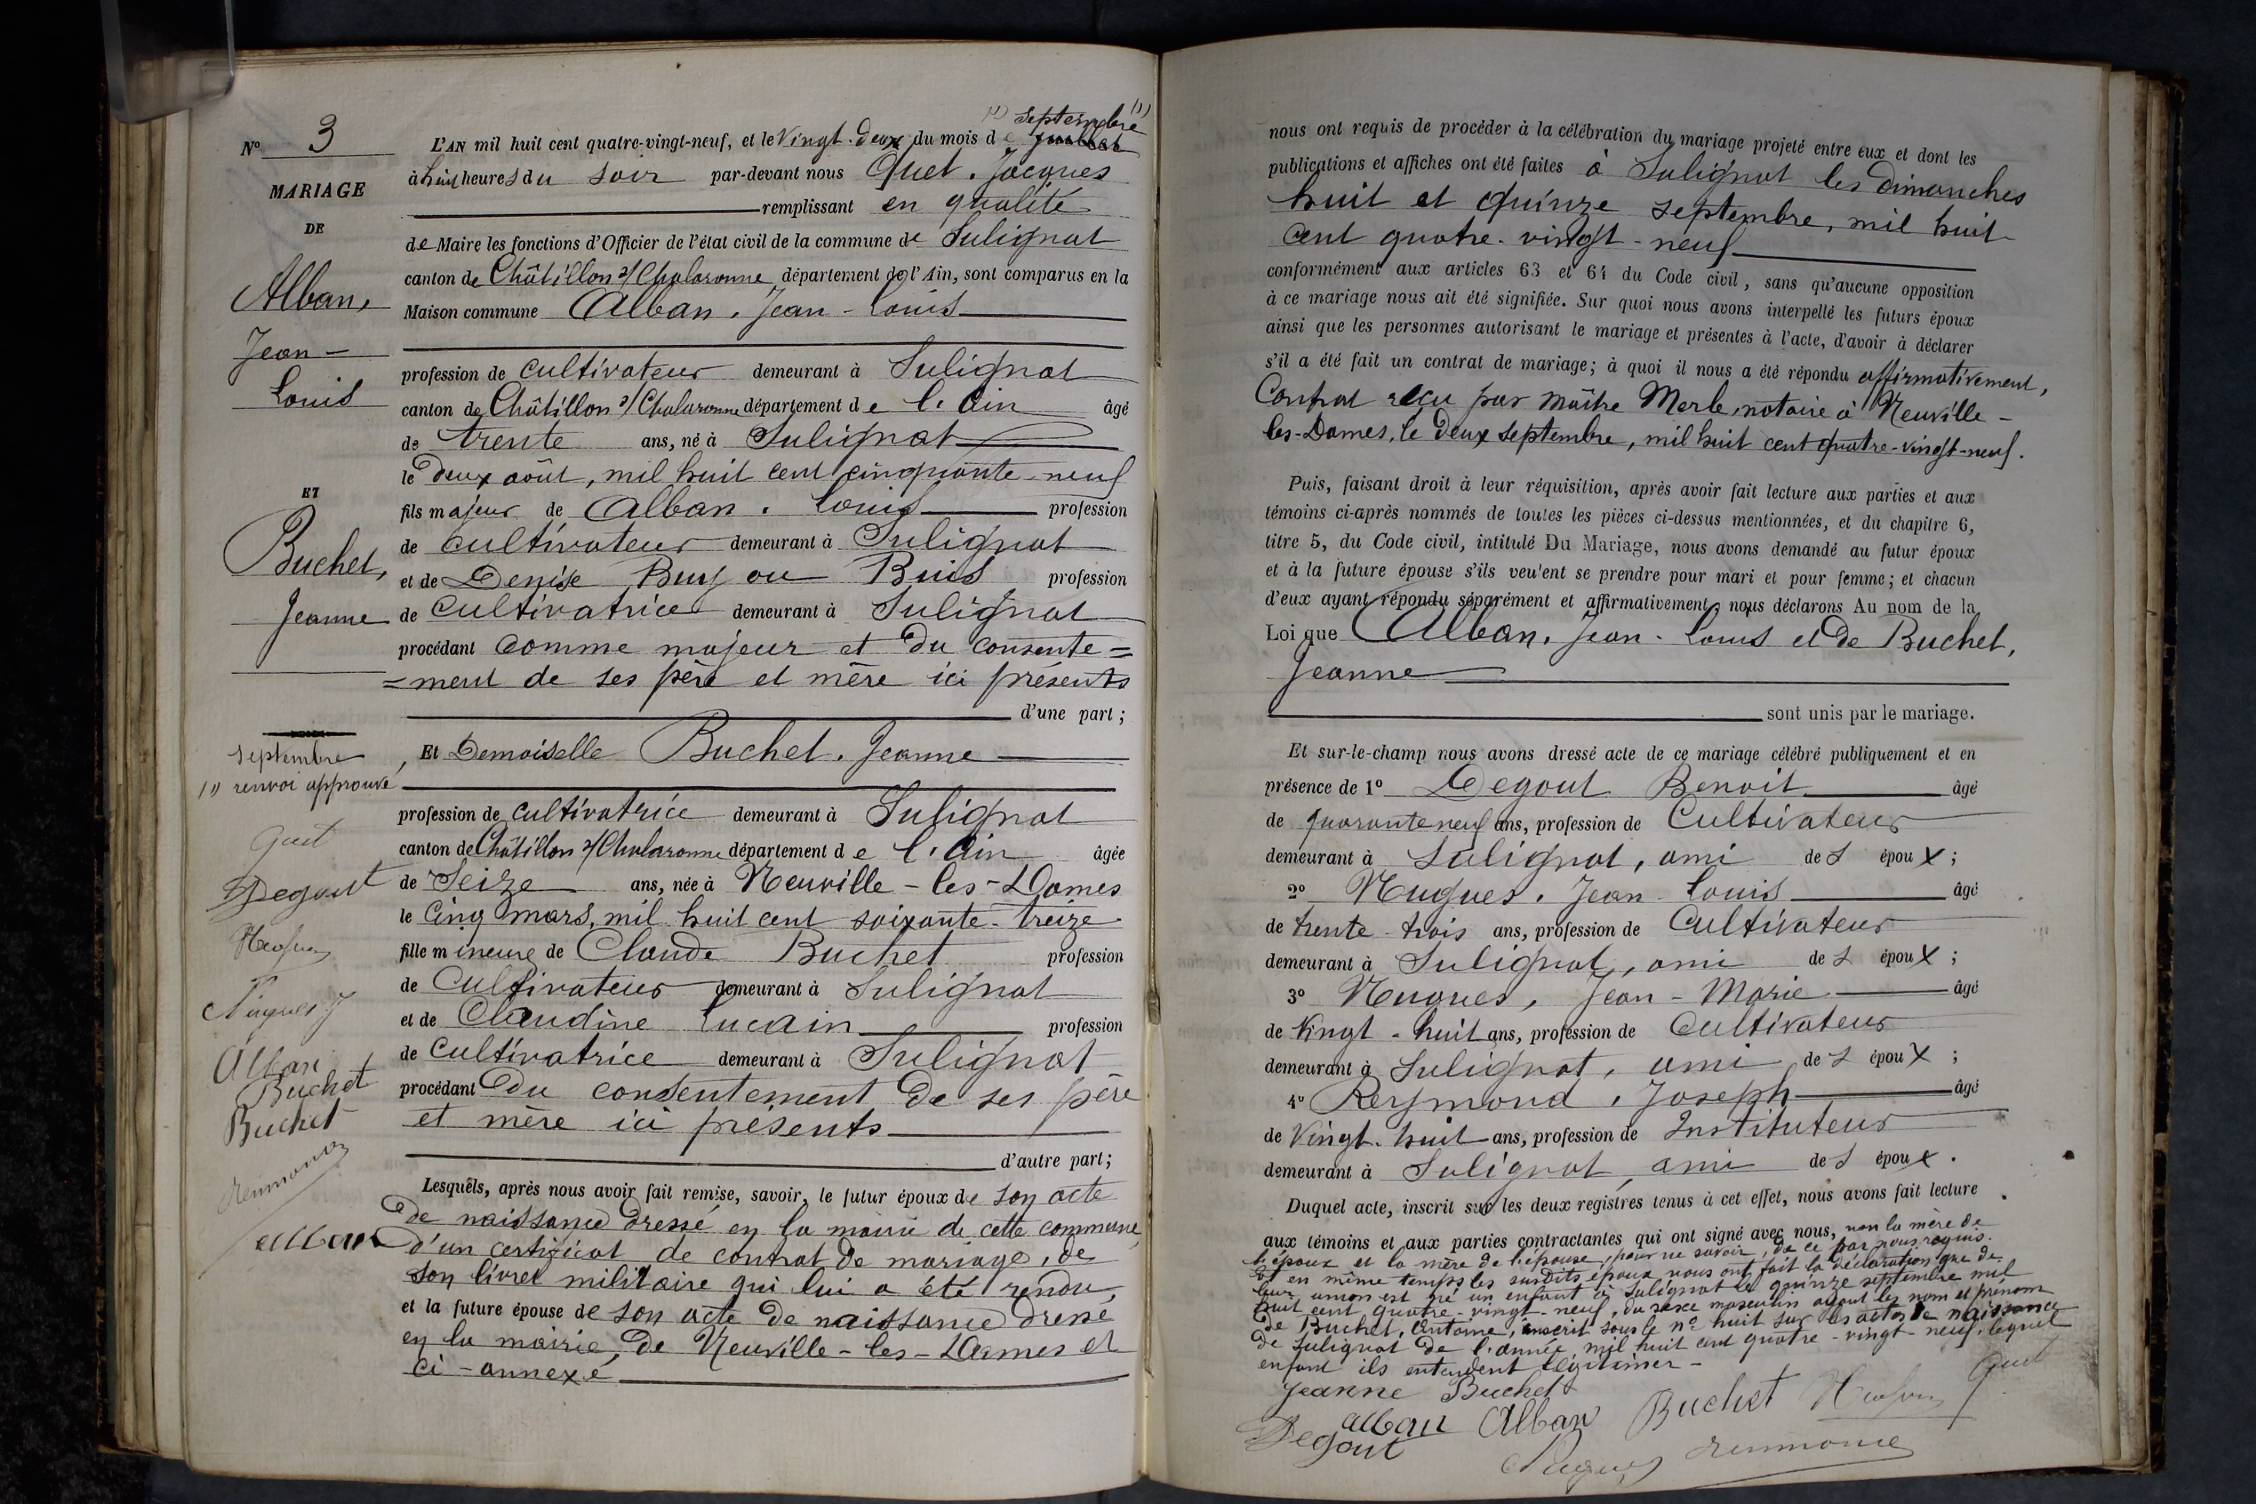 N° 3
MARIAGE
DE
Alban,
Jean-
Louis
ET
Buchet,
Jeanne
septembre
(1) renvoi approuvé
Quet
Degout
Nugues J
Alban
Buchet
Buchet
Reymond
alban
(1) septembre (1)
L'AN mil huit cent quatre-vingt-neuf, et le Vingt-deux du mois de juillet
à huit heures du soir par-devant nous Quet, Jacques
remplissant en qualité
de Maire les fonctions d'Officier de l'état civil de la commune de Sulignat
canton de Châtillon s/ Chalaronne département de l'Ain, sont comparus en la
Maison commune Alban, Jean-Louis
profession de cultivateur demeurant à Sulignat
canton de Châtillon s/ Chalaronne département de l'Ain âgé
de trente ans, né à Sulignat
le deux août, mil huit cent cinquante-neuf
fils majeur de Alban, Louis profession
de cultivateur demeurant à Sulignat
et de Denise Buy ou Buis profession
de cultivatrice demeurant à Sulignat
procédant comme majeur et du consente=
=ment de ses père et mère ici présents
d'une part;
Et Demoiselle Buchet, Jeanne
profession de cultivatrice demeurant à Sulignat
canton de Châtillon s/ Chalaronne département de l'Ain âgée
de Seize ans, née à Neuville-les-Dames
le Cinq mars, mil huit cent soixante-treize
fille mineure de Claude Buchet profession
de Cultivateur demeurant à Sulignat
et de Claudine Lucain profession
de cultivatrice demeurant à Sulignat
procédant du consentement de ses père
et mère ici présents
d'autre part;
Lesquels, après nous avoir fait remise, savoir, le futur époux de son acte
de naissance dressé en la mairie de cette commune,
d'un certificat de contrat de mariage, de
son livret militaire qui lui a été rendu,
et la future épouse de son acte de naissance dressé
en la mairie de Neuville-les-Dames et
ci-annexé
nous ont requis de procéder à la célébration du mariage projeté entre eux et dont les
publications et affiches ont été faites à Sulignat les dimanches
huit et quinze septembre, mil huit
cent quatre-vingt-neuf
conformément aux articles 63 et 64 du Code civil, sans qu'aucune opposition
à ce mariage nous ait été signifiée. Sur quoi nous avons interpellé les futurs époux
ainsi que les personnes autorisant le mariage et présentes à l'acte, d'avoir à déclarer
s'il a été fait un contrat de mariage; à quoi il nous a été répondu affirmativement,
Contrat reçu par maître Merle, notaire à Neuville-
les-Dames, le deux septembre, mil huit cent quatre-vingt-neuf.
Puis, faisant droit à leur réquisition, après avoir fait lecture aux parties et aux
témoins ci-après nommés de toutes les pièces ci-dessus mentionnées, et du chapitre 6,
titre 5, du Code civil, intitulé Du Mariage, nous avons demandé au futur époux
et à la future épouse s'ils veulent se prendre pour mari et pour femme; et chacun
d'eux ayant répondu séparément et affirmativement, nous déclarons Au nom de la
Loi que Alban, Jean-Louis et de Buchet,
Jeanne
sont unis par le mariage.
Et sur-le-champ nous avons dressé acte de ce mariage célébré publiquement et en
présence de 1° Degout Benoit âgé
de quarante neuf ans, profession de Cultivateur
demeurant à Sulignat, ami des époux;
2° Nugues, Jean Louis âgé
de trente-trois ans, profession de Cultivateur
demeurant à Sulignat, ami des époux;
3° Nugues, Jean-Marie âgé
de Vingt-huit ans, profession de Cultivateur
demeurant à Sulignat, ami des époux;
4° Reymond, Joseph âgé
de Vingt-huit ans, profession de Instituteur
demeurant à Sulignat, ami des époux.
Duquel acte, inscrit sur les deux registres tenus à cet effet, nous avons fait lecture
aux témoins et aux parties contractantes qui ont signé avec nous, non la mère de
l'époux et la mère de l'épouse, pour ne savoir, de ce par nous requis.
Et en même temps les susdits époux nous ont fait la déclaration que de
leur union est né un enfant à Sulignat le quinze septembre mil
huit cent quatre-vingt-neuf, du sexe masculin ayant les nom et prénom
de Buchet, Antoine, inscrit sous le n° huit sur les actes de naissance
de Sulignat de l'année mil huit cent quatre-vingt-neuf, lequel
enfant ils entendent légitimer-
Jeanne Buchet
Quet
alban Alban Buchet
Degout
Nugues Reymond